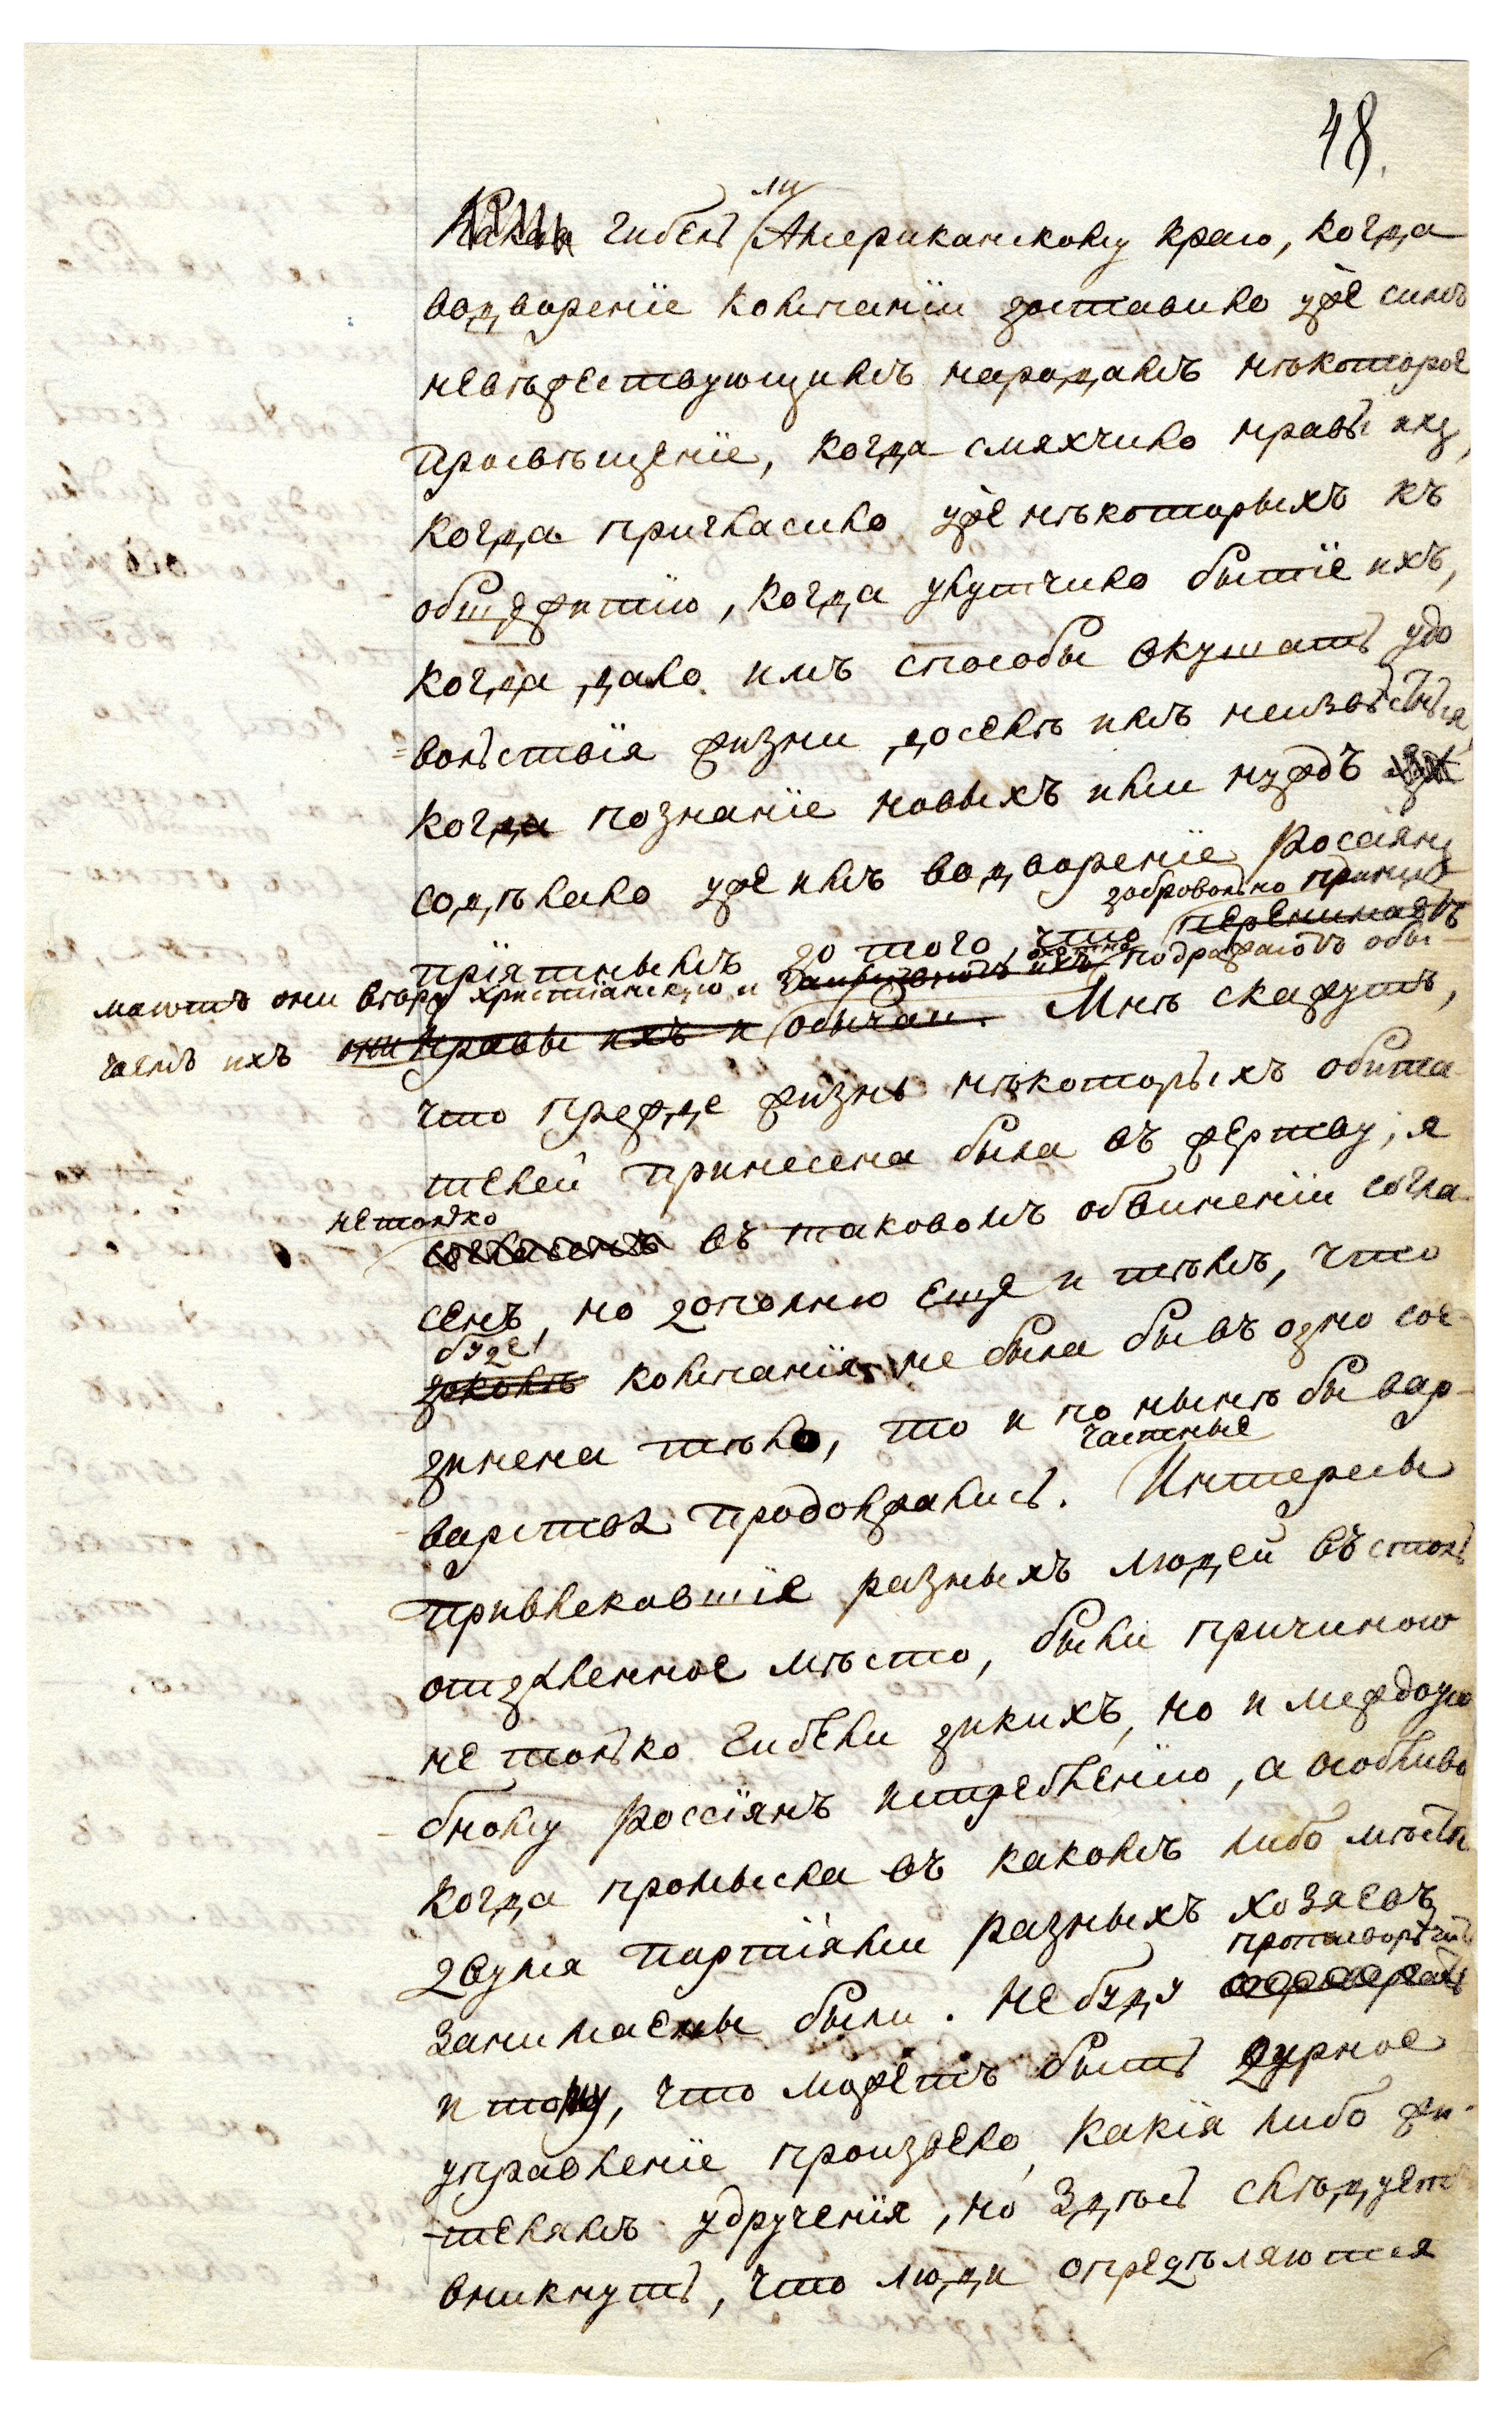 48.
ли
Какая гибель Американскому краю, когда
водвореніе компаніи доставило уже симъ
невѣжествующимъ народамъ нѣкоторое
просвѣщеніе, когда смяхчило нравы ихъ,
когда пригласило уже нѣкоторыхъ къ
общежитію, когда улутчило бытіе ихъ,
когда дало имъ способы вкушать удо
=вольствія жизни доселѣ имъ неизвѣстныя,
когда познаніе новыхъ ими нуждъ
содѣлало уже имъ водвореніе Россіянъ
добровольно прини
пріятнымъ до того, что перенимаютъ
маютъ они вѣру христіанскую и подражаютъ обы-
чаямъ ихъ они нравы ихъ и обычаи. Мнѣ скажутъ,
что прежде жизнь нѣкоторыхъ обита-
телей принесена была въ жертву; я
не только
согласенъ въ таковомъ обвиненіи согла-
сенъ, но дополню еще и тѣмъ, что
буде
компанія не была бы въ одно сое-
динена тѣло, то и по нынѣ бы вар-
частные
-варства продолжались. Интересы
привлекавшіе разныхъ людей въ столь
отдаленное мѣсто, были причиною
не только гибели дикихъ, но и междоусо
-бному Россіянъ истребленію, а особливо
когда промысла въ какомъ либо мѣстѣ
двумя партіями разныхъ хозяевъ
противорѣчить
занимаемы были. Не буду
и тому, что можетъ быть дурное
управленіе произвело какія либо жи-
телямъ удрученія, но здѣсь слѣдуетъ
вникнуть, что люди опредѣляются